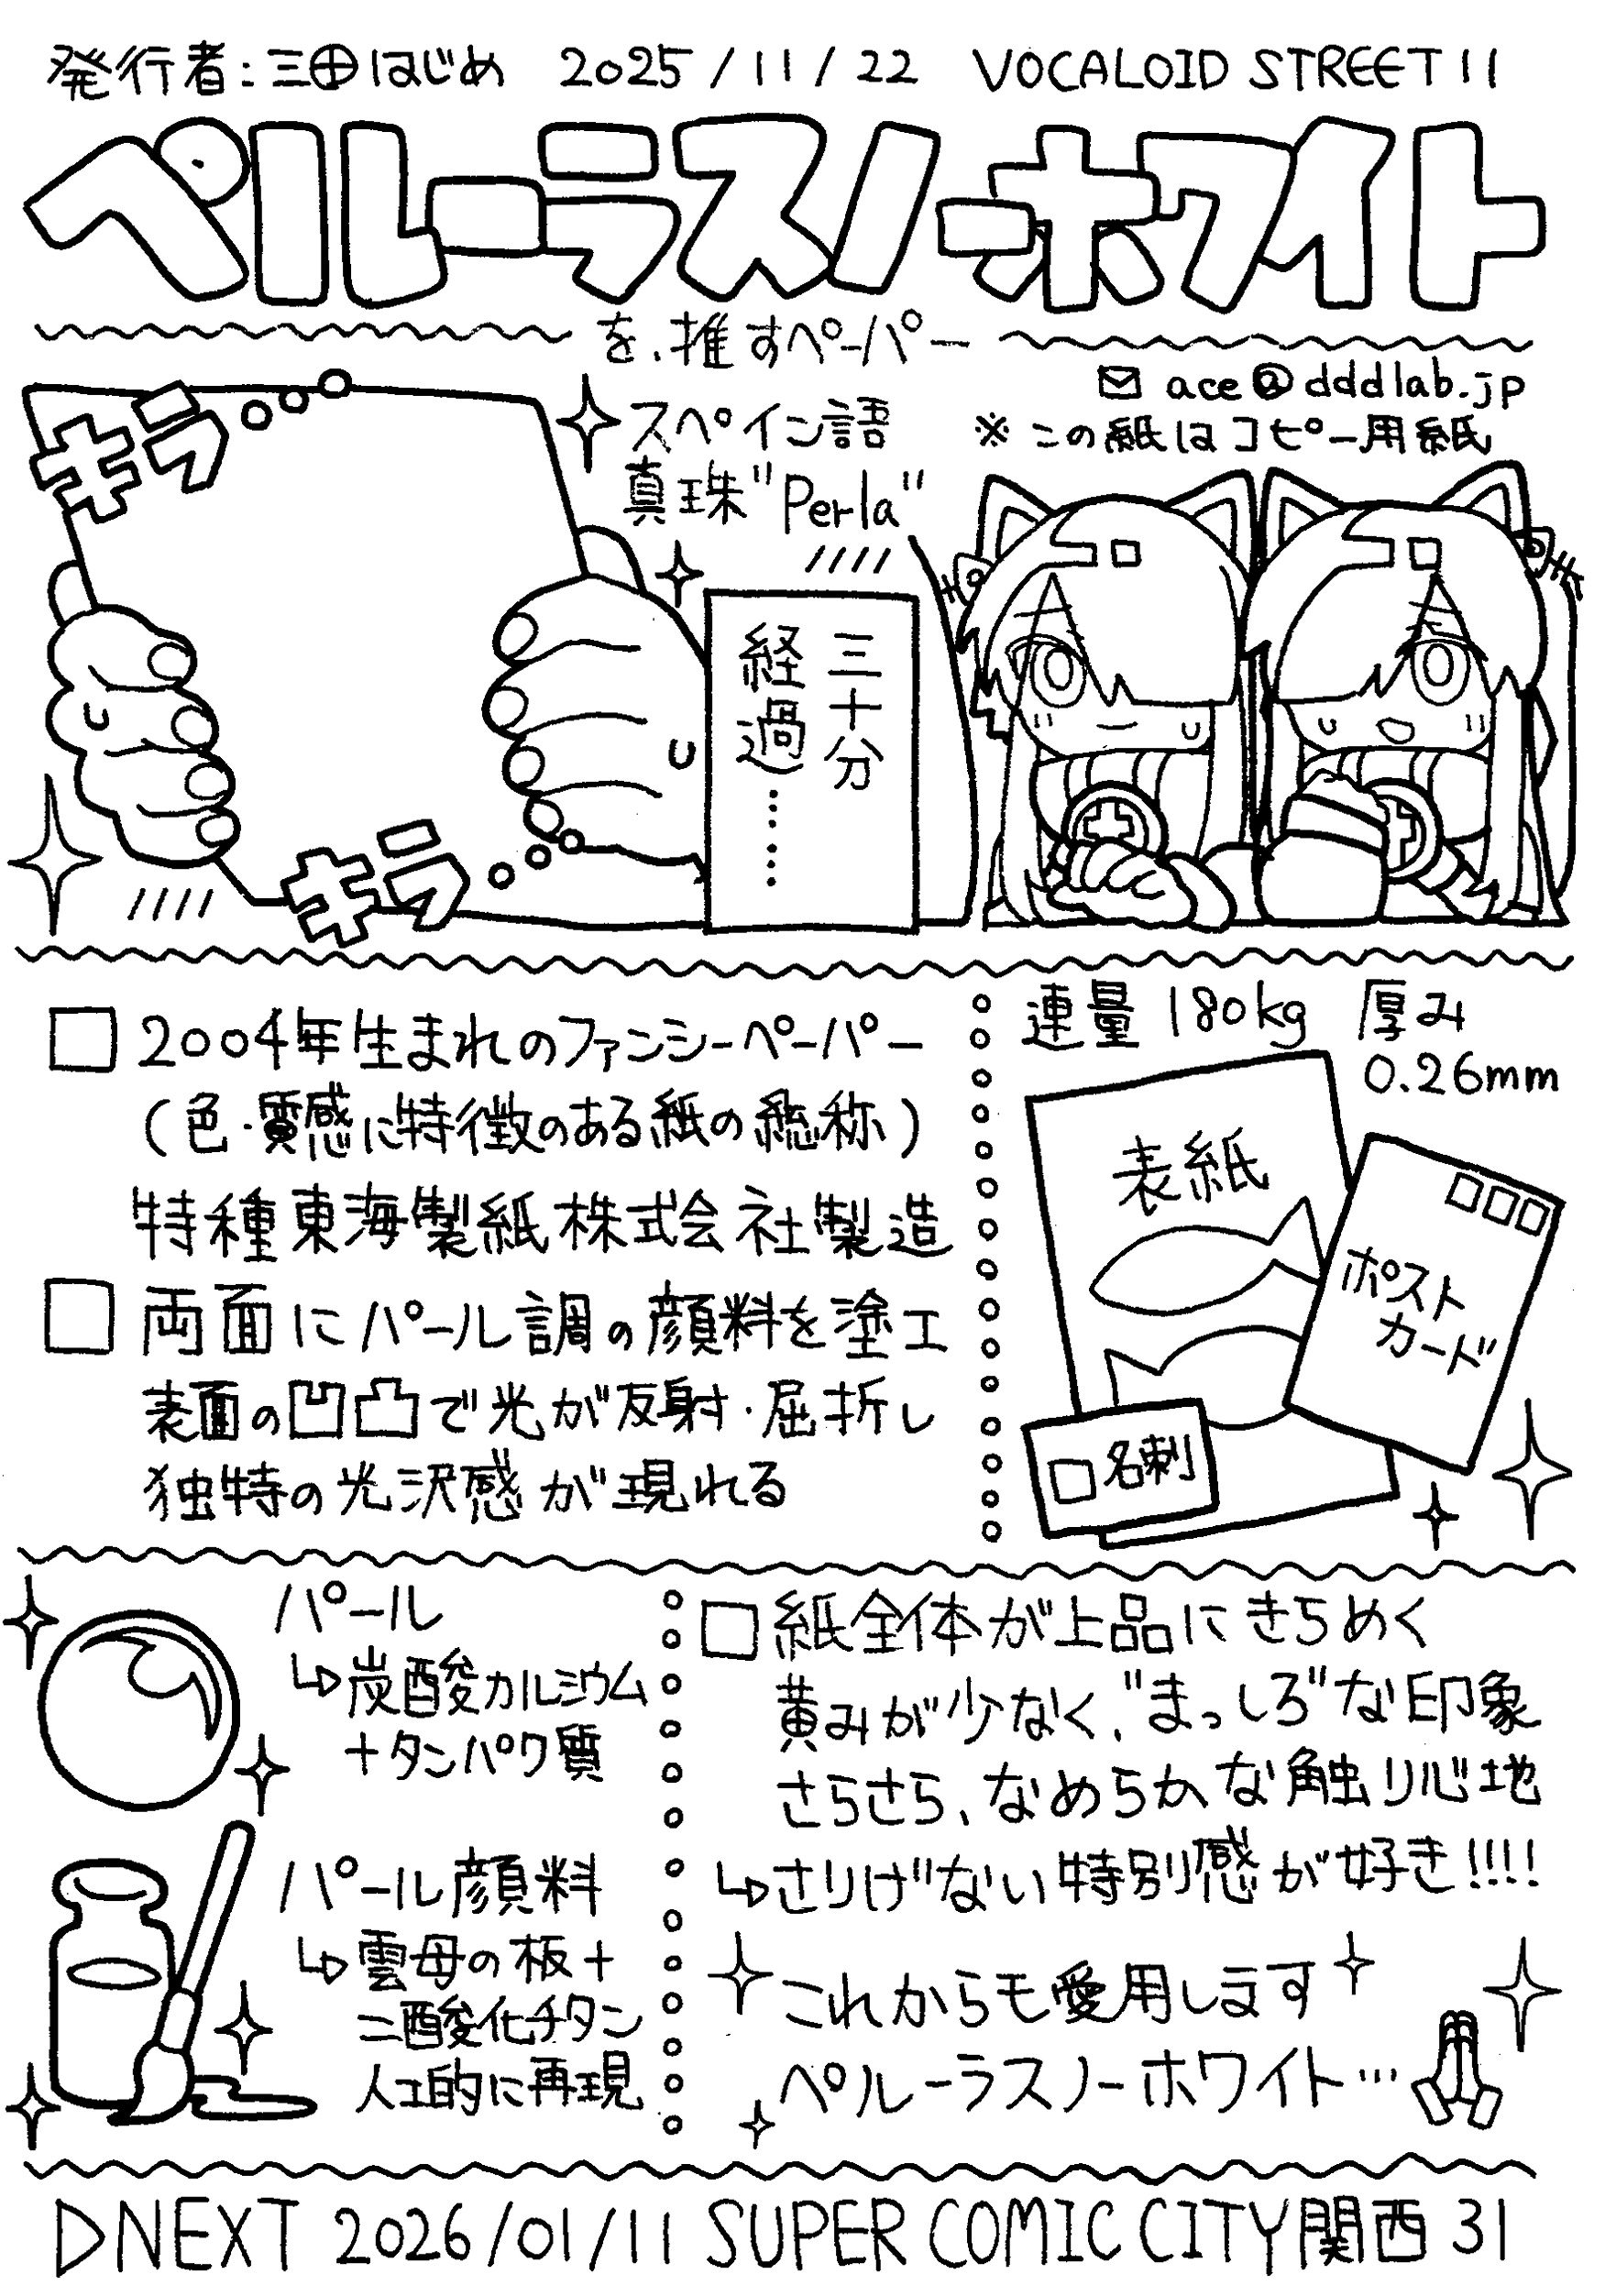 発行者:三田はじめ 2025/11/22 VOCALOID STREET 11
ペルーラスノーホワイト
を、推すペーパー
✉ ace@dddlab.jp
※この紙はコピー用紙
キラ
スペイン語
真珠"Perla"
三十分
経過……
キラ
□ 2004年生まれのファンシーペーパー
(色・質感に特徴のある紙の総称)
特種東海製紙株式会社製造
□ 両面にパール調の顔料を塗工
表面の凹凸で光が反射・屈折し
独特の光沢感が現れる
連量 180kg 厚み
0.26mm
表紙
ポスト
カード
名刺
パール
↳炭酸カルシウム
+タンパク質
パール顔料
↳雲母の板+
二酸化チタン
人工的に再現
□ 紙全体が上品にきらめく
黄みが少なく、"まっしろ"な印象
さらさら、なめらかな触り心地
↳さりげない特別感が好き!!!!
これからも愛用します
ペルーラスノーホワイト…
▷NEXT 2026/01/11 SUPER COMIC CITY関西 31